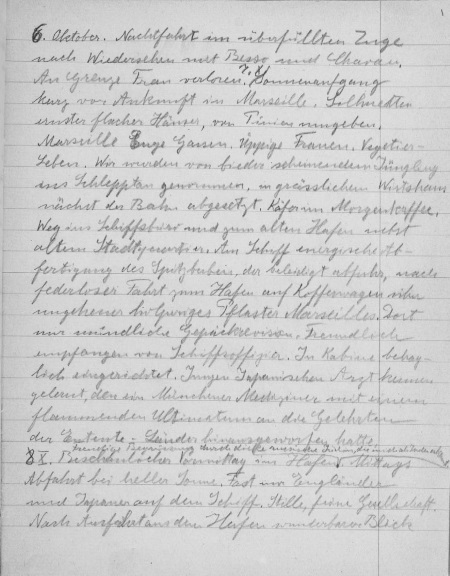 6. Oktober. Nachtfahrt im überfüllten Zuge
nach Wiedersehen mit Besso und Chavan.
An Grenze Frau verloren. 7. X. Sonnenaufgang
kurz vor Ankunft in Marseille. Silhouetten
ernster flacher Häuser, von Pinien umgeben.
Marseille Enge Gassen. Üppige Frauen. Vegetier-
leben. Wir wurden von bieder scheinendem Jüngling
ins Schlepptau genommen, in grässlichem Wirtshaus
nächst der Bahn abgesetzt. Käfer im Morgenkaffee.
Weg ins Schiffsbüro und zum alten Hafen nebst
altem Stadtquartier. Am Schiff energische Ab-
fertigung des Spitzbuben, der beleidigt abfuhr, nach
federloser Fahrt zum Hafen auf Kofferwagen über
ungeheuer holpriges Pflaster Marseilles. Dort
nur mündliche Gepäckrevision. Freundlich
empfangen von Schiffsoffizier. In Kabine behag-
lich eingerichtet. Jungen Japanischen Arzt kennen
gelernt, den ein Münchener Mediziner mit einem
flammenden Ultimatum an die Gelehrten
der Entente-Länder hinausgeworfen hatte.
freudige Begrüssung durch dicke russische Jüdin, die mich als Juden
8. X. Beschaulicher Vormittag im Hafen. Mittags
Abfahrt bei heller Sonne. Fast nur Engländer
und Japaner auf dem Schiff. Stille, feine Gesellschaft.
Nach Ausfahrt aus dem Hafen wunderbare Blicke